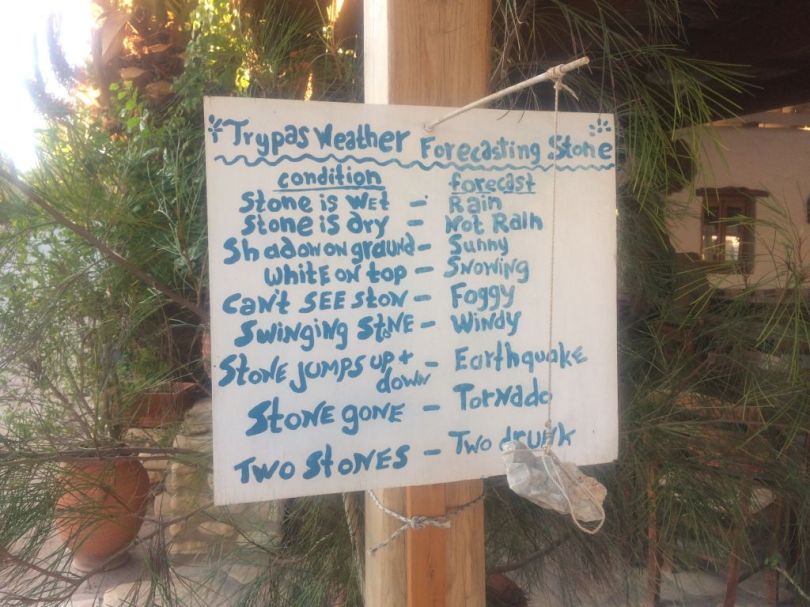 Trypas Weather Forecasting Stone
condition forecast
Stone is wet - Rain
Stone is dry - Not Rain
Shadow on ground - Sunny
white on top - Snowing
Can't see ston - Foggy
Swinging Stone - Windy
Stone jumps up + down - Earthquake
Stone gone - Tornado
Two Stones - Two drunk